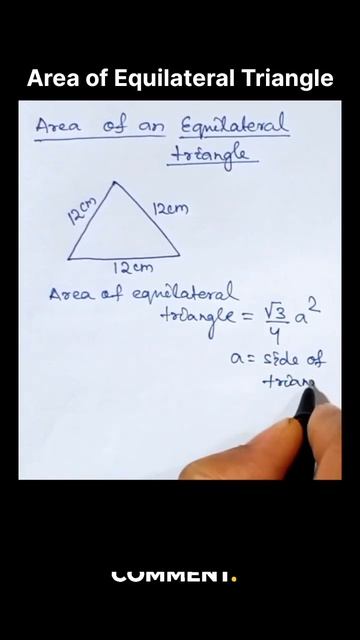 Area of Equilateral Triangle
Area of an Equilateral
triangle
12cm
12cm
12cm
Area of equilateral
triangle = √3/4 a²
a = side of
trian
COMMENT.